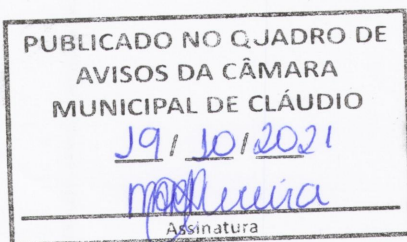 PUBLICADO NO QUADRO DE
AVISOS DA CÂMARA
MUNICIPAL DE CLÁUDIO
19/10/2021
Assinatura